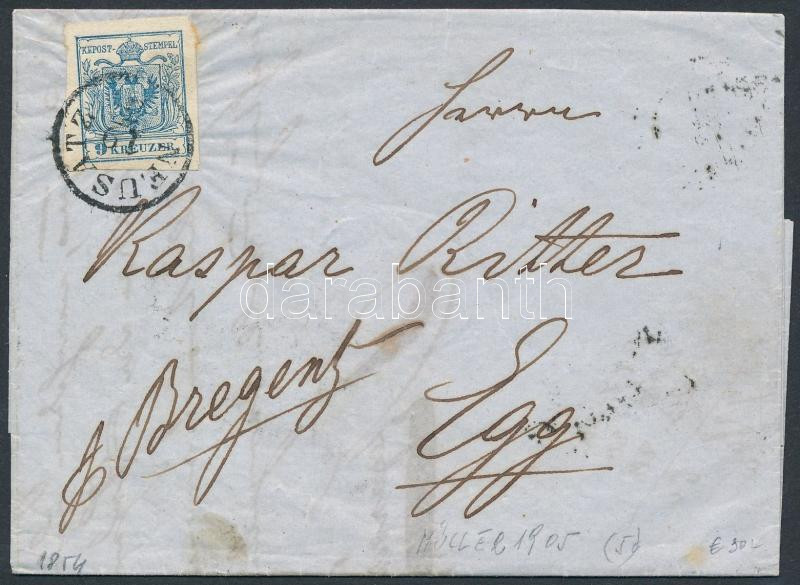 KK POST-STEMPEL
9 KREUZER.
Herrn
Kaspar Ritter
darabanth
Bregenz
Egg
MÜLLER 1905 (5)
1854